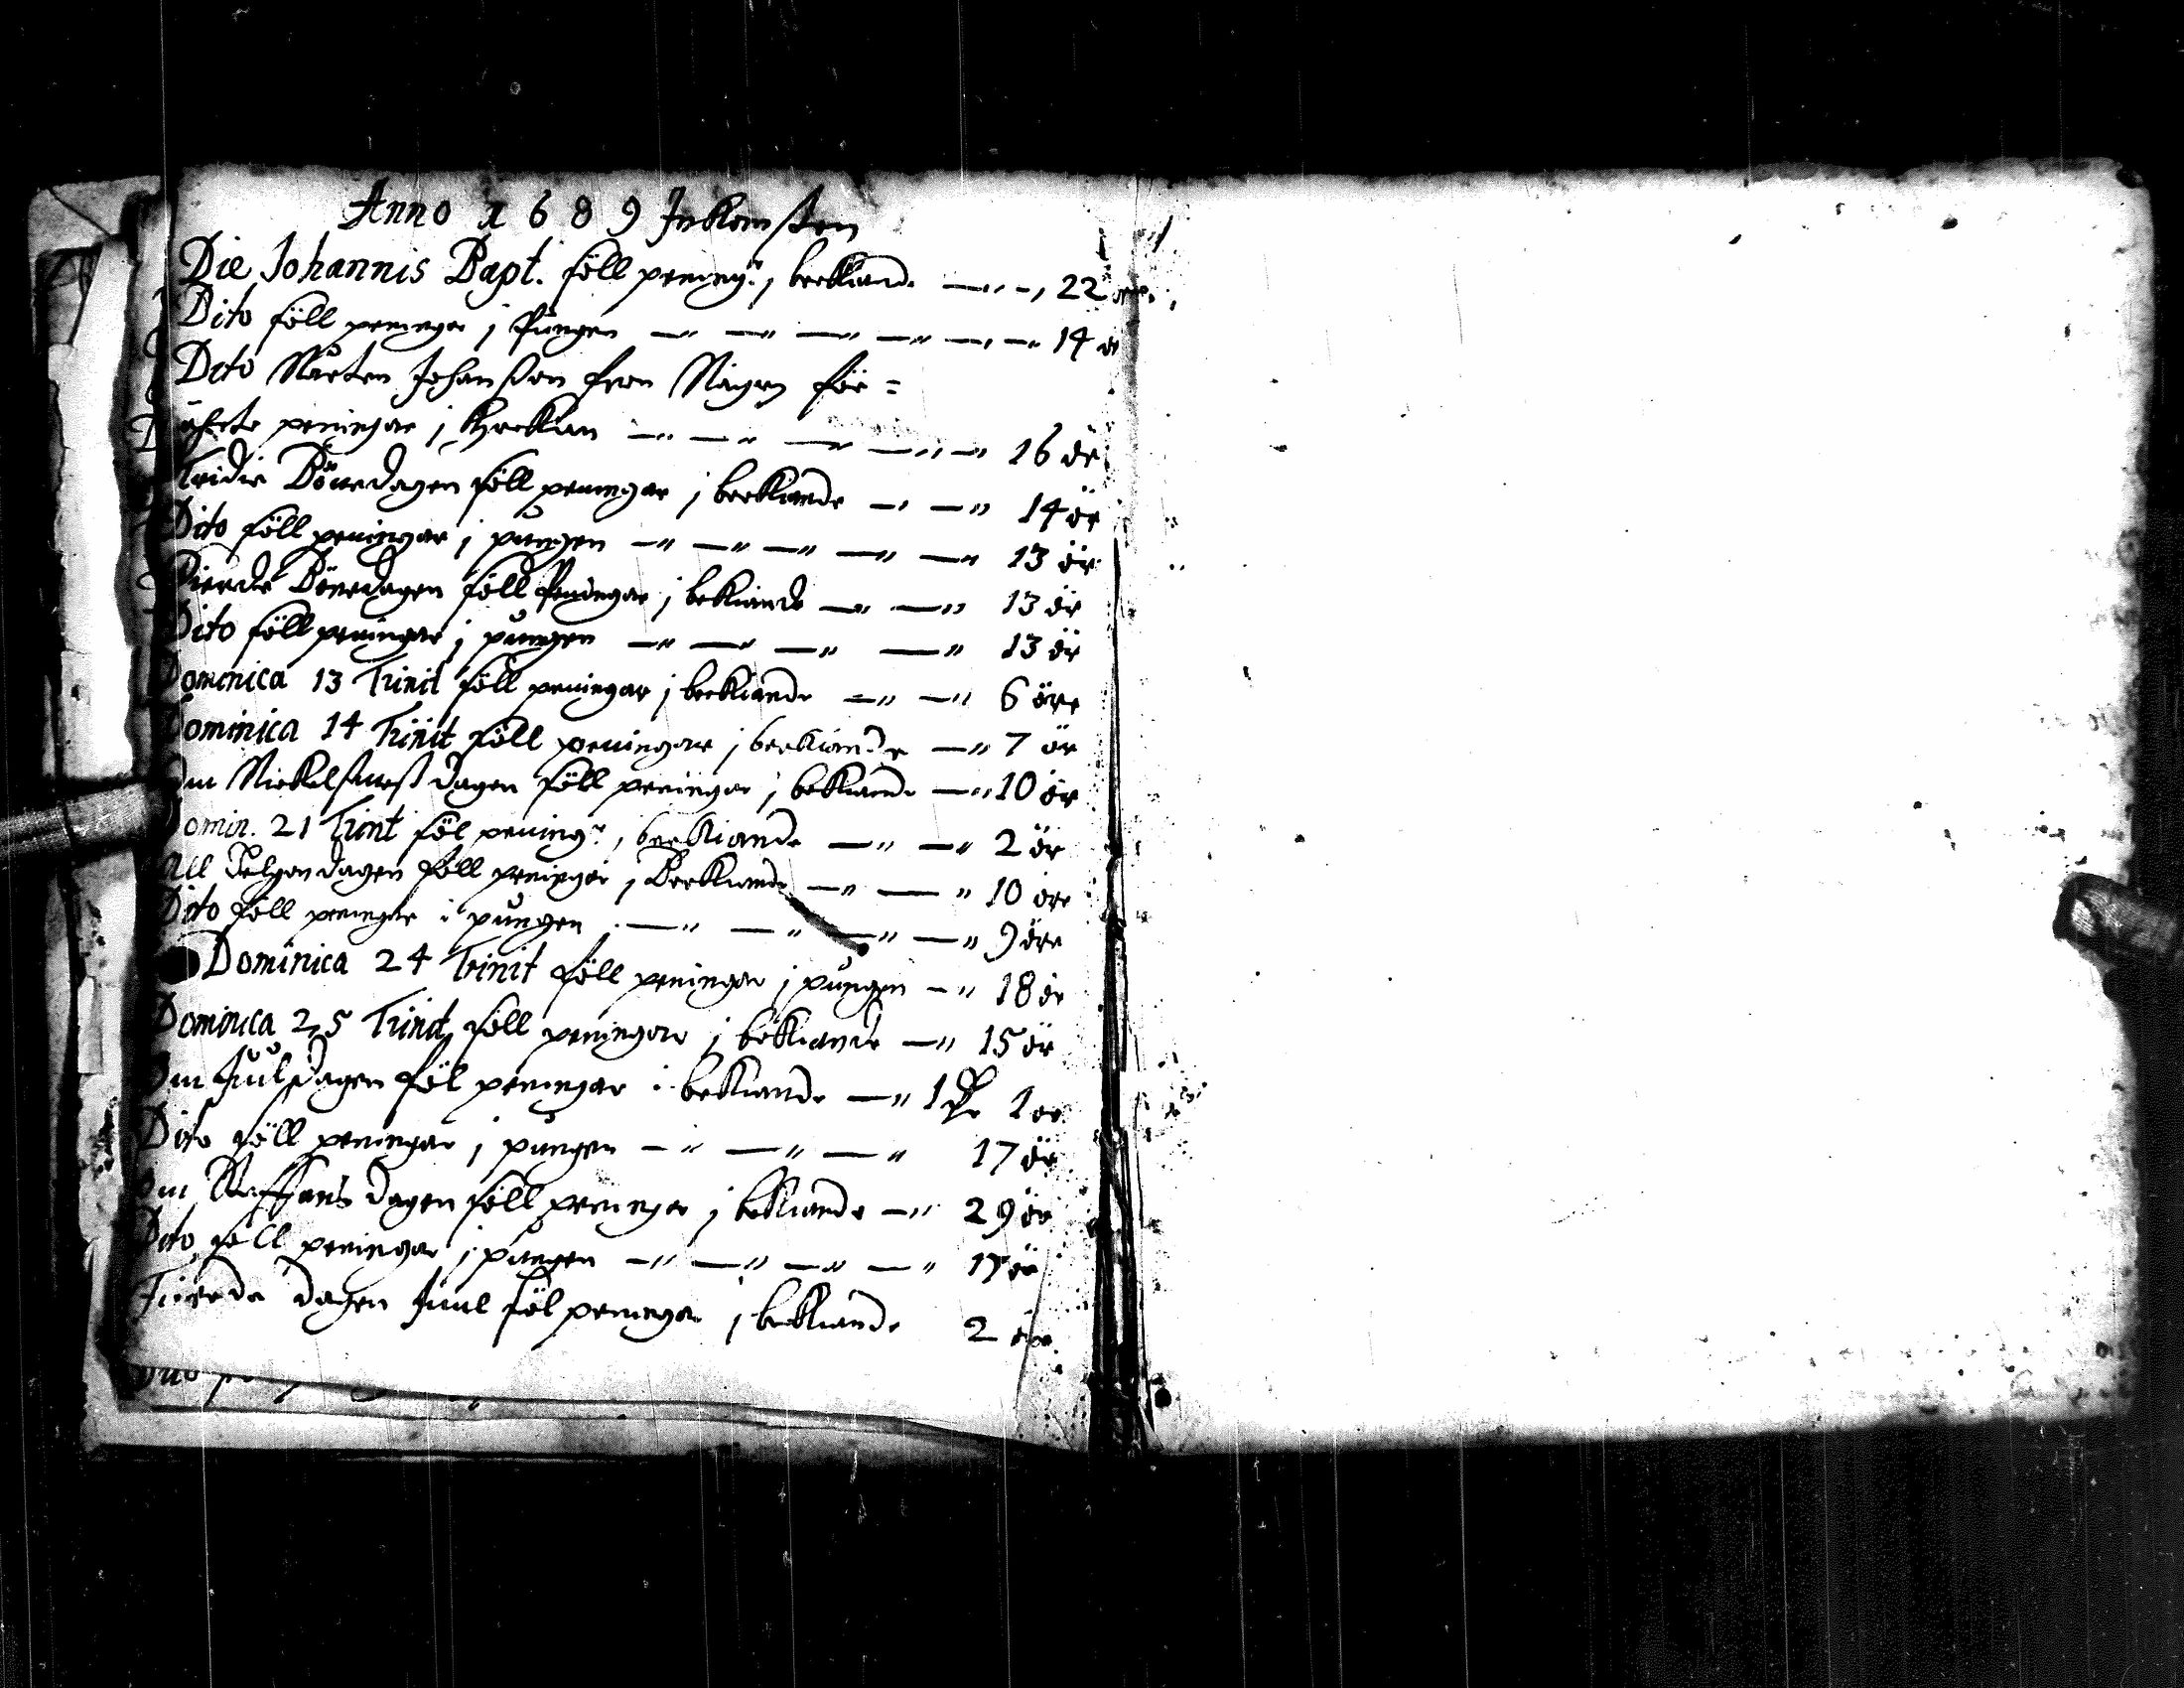 Anno 1689 Inkomsten
Die Johannis Bapt. föll pening:r j beckiande — „ — „ 22 öre
Dito föll peninga j Pungen — „ — „ — „ — „ — „ — „ 14 ör
Dito Mårten Johansson fron för=
ährte peningar j Kyrckian — „ — „ — „ — „ — „ 16 ör
Tridie Bönedagen föll peningar j beckiande — „ — „ 14 ör
Dito föll peningar j pungen — „ — „ — „ — „ — „ 13 ör
Fierde Bönedagen föll Peningar j bekiande — „ — „ 13 ör
Dito föll peningar j pungen — „ — „ — „ — „ 13 ör
Dominica 13 Trinit föll peningar j beckiande — „ — „ 6 öre
Dominica 14 Trinit föll peningar j beckiande — „ 7 ör
Om Mickelsmess dagen föll peninga j bekiande — „ 10 ör
Domin. 21 Trint föl pening:r j beckiande — „ — „ 2 ör
All Helgon dagen föll peningar j Beckiande — „ — „ 10 öre
Dito föll peningar i pungen — „ — „ — „ — „ 9 öre
Dominica 24 Trinit föll peningar j pungen — „ 18 ör
Dominica 25 Trinit föll peningar j bekiande — „ 15 ör
Om Juldagen föl peningar i bekiande — „ 1 Dr 1 ör
Dito föll peningar j pungen — „ — „ — „ 17 ör
Om Staffans dagen föll peninga j bekiande — „ 29 ör
Dito föll peningar j pungen — „ — „ — „ — „ 17 ör
Fierde dagen Juul föl peninga j beckiande 2 öre